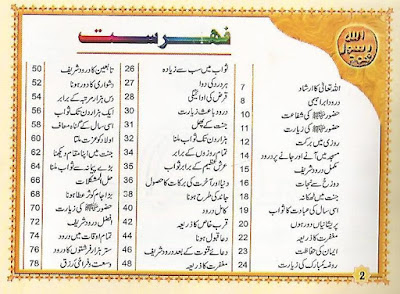 فہرست
اللہ رسول محمد
اللہ تعالیٰ کا ارشاد 7
درود ابراہیمی 8
حضور ﷺ کی شفاعت 10
حضور ﷺ کی زیارت 11
روزی میں برکت 12
مسجد میں آنے اور جانے پر درود 14
مکمل درود شریف 15
دوزخ سے نجات 16
جنت میں ٹھکانہ 18
اسی سال کی عبادت کا ثواب 19
پریشانیاں دور ہوں 20
مغفرت کا ذریعہ 22
ایمان کی حفاظت 23
روضہ مبارک کی زیارت 24
ثواب میں سب سے زیادہ 26
ہر درد کی دوا 27
قرض کی ادائیگی 28
درود باعث زینت 30
جنت کے پھل 31
ہزار دن تک ثواب ملنا 32
تمام روزوں کے برابر 34
عرش عظیم کے برابر ثواب 35
دنیا و آخرت کی برکات کا حصول 36
چاند کی طرح ہونا 38
کامل درود 40
قرب خاص کا ذریعہ 42
دعا قبول ہونا 44
دعائے قنوت کے بعد درود شریف 46
مغفرت کا ذریعہ 48
تابعین کا درود شریف 50
دشواری کا دور ہونا 52
دس ہزار مرتبہ کے برابر 54
ایک ہزار دن تک ثواب 56
اسی سال کے گناہ معاف 58
اولاد کو عزت ملنا 60
جنت میں اپنا مقام دیکھنا 62
بڑے پیمانہ سے ثواب ملنا 64
حل المشکلات 66
بڑا جام کوثر عطا ہونا 68
حضور ﷺ کی زیارت 70
افضل درود شریف 72
تمام اوقات میں درود 74
ستر ہزار فرشتوں کا درود 76
وسعت و فراخی رزق 78
2